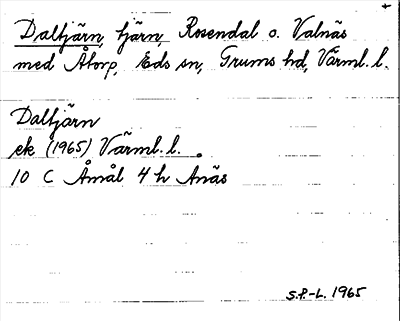 Daltjärn, tjärn, Rosendal o. Valnäs
med Åtorp, Eds sn, Grums hd, Värml. l.
Daltjärn
ek (1965) Värml. l.
10 C Åmål 4 h Ånäs
S.P.-L. 1965